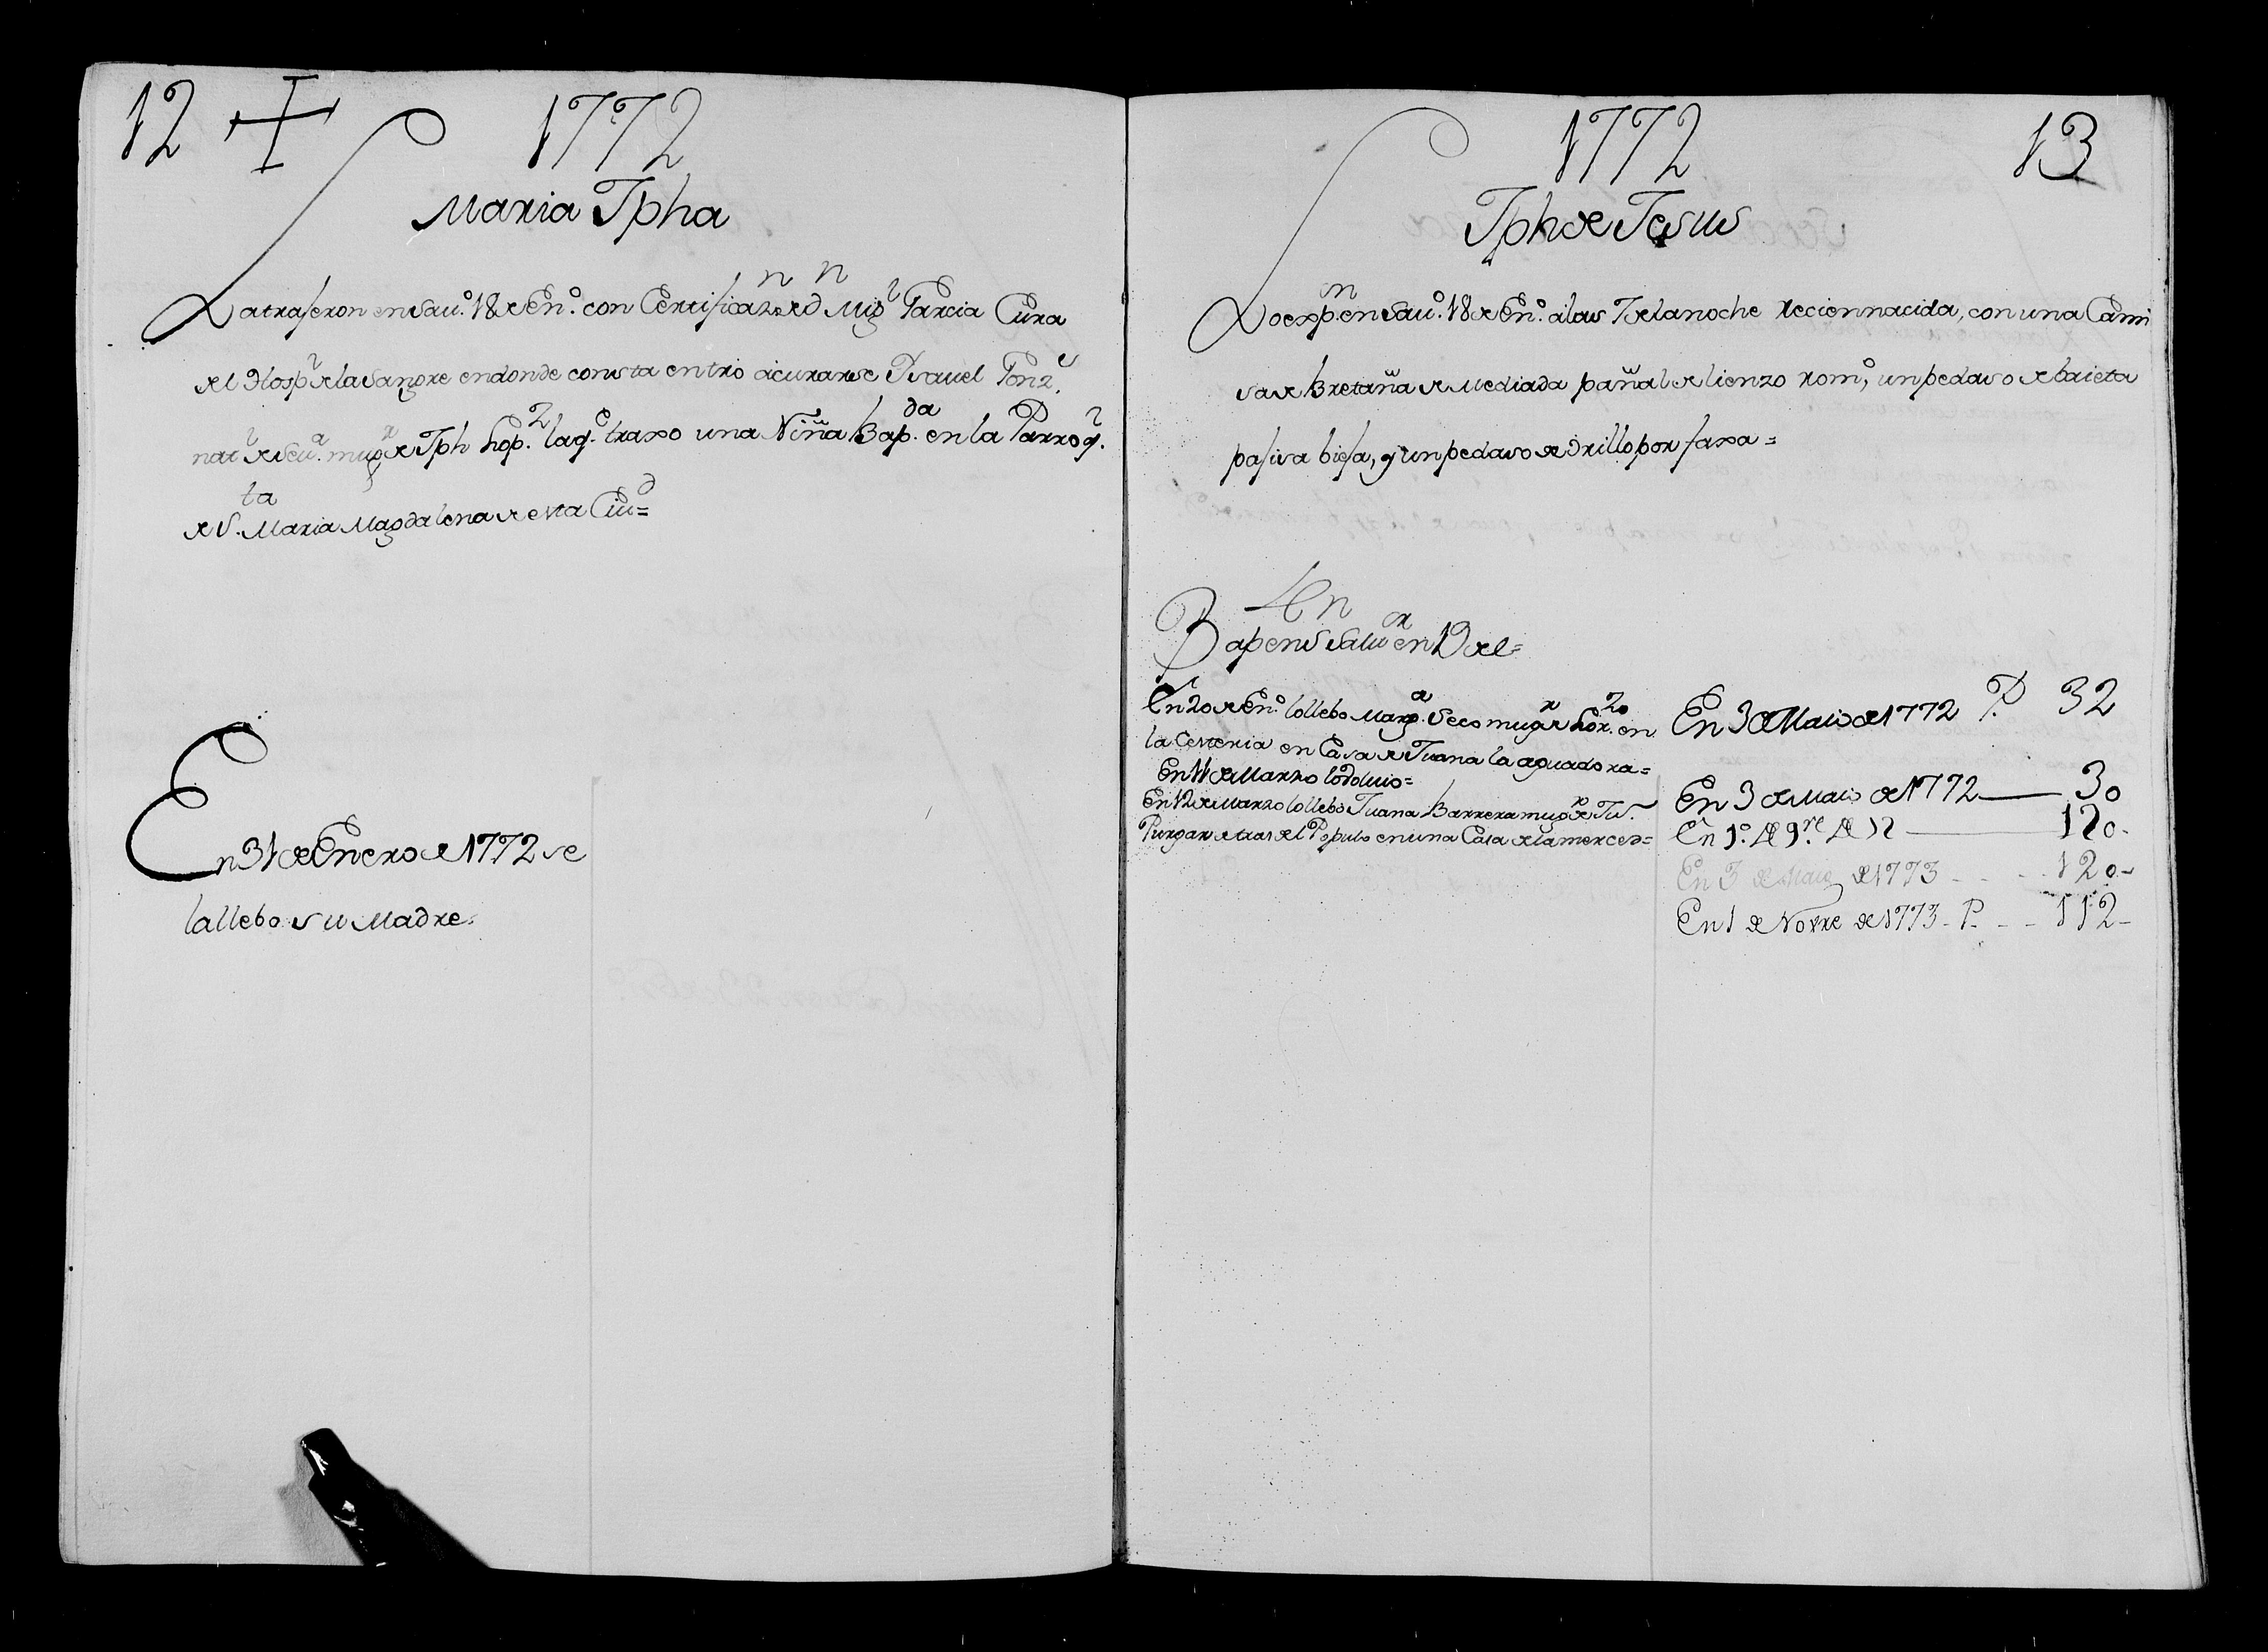 12 + 1772
Maria Jpha
La trageron en Savo. 18 de Eno. con Certificazn. de dn Migl Garcia Cura
del Hospl de la Sangre en donde consta entrò à curararse Ysavel Gonze.
natl de Seva. mugr de Jph Lopz. la qe. traxo una Niña Bapda. en la Parroql.
de Sta. Maria Magdalena de esta Ciud=
En 31 de Enero de 1772 se
la llebo su Madre.
1772 13
Jph de Jesus
Lo expn. en Savo. 18 de Eno. à las 7 de la noche recien nacida, con una Cami
sa de Bretaña de Mediada pañal de lienzo romo, un pedaso de baieta
pagisa biega, y un pedaso de Orillo por faxa=
Bap en Sn Salvor en 19 del=
En 20 de Eno. lo llebo Marga. Seco mugr de Lorzo. en
la Cesteria en Casa de Juana la aguadora=
En 11 de Marzo lo dolvio=
En 12 de Marzo lo llebo Juana Barrera mugr de Ju.
Purgar detras del Populo en una Casa de la merced=
En 3 de Maio de 1772 P. 32
En 3 de Maio de 1772 30
En 1o. de 9re. de 72 120-
En 3 de Maio de 1773 - - - 120-
En 1 de Novre de 1773 - P. - - 112-